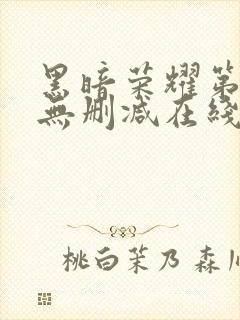 黑暗荣耀第
無删减在綫
桃白茉乃 森川